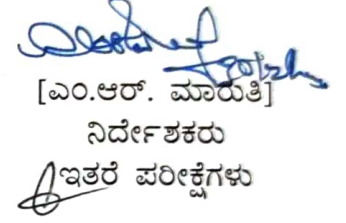 [ಎಂ.ಆರ್. ಮಾರುತಿ]
ನಿರ್ದೇಶಕರು
ಇತರೆ ಪರೀಕ್ಷೆಗಳು